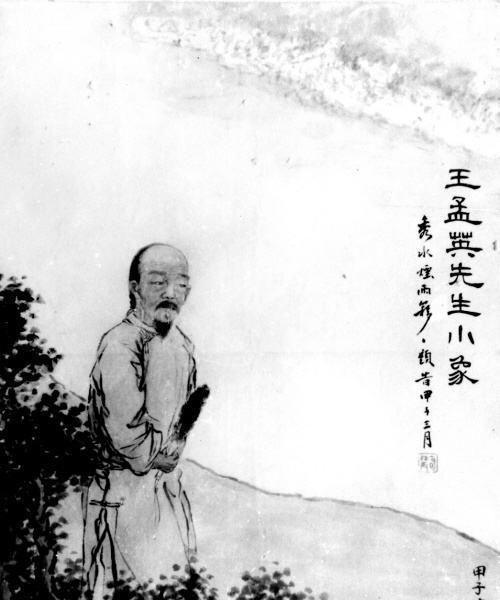 王孟英先生小象
秀水煙雨題昔甲子三月
甲子